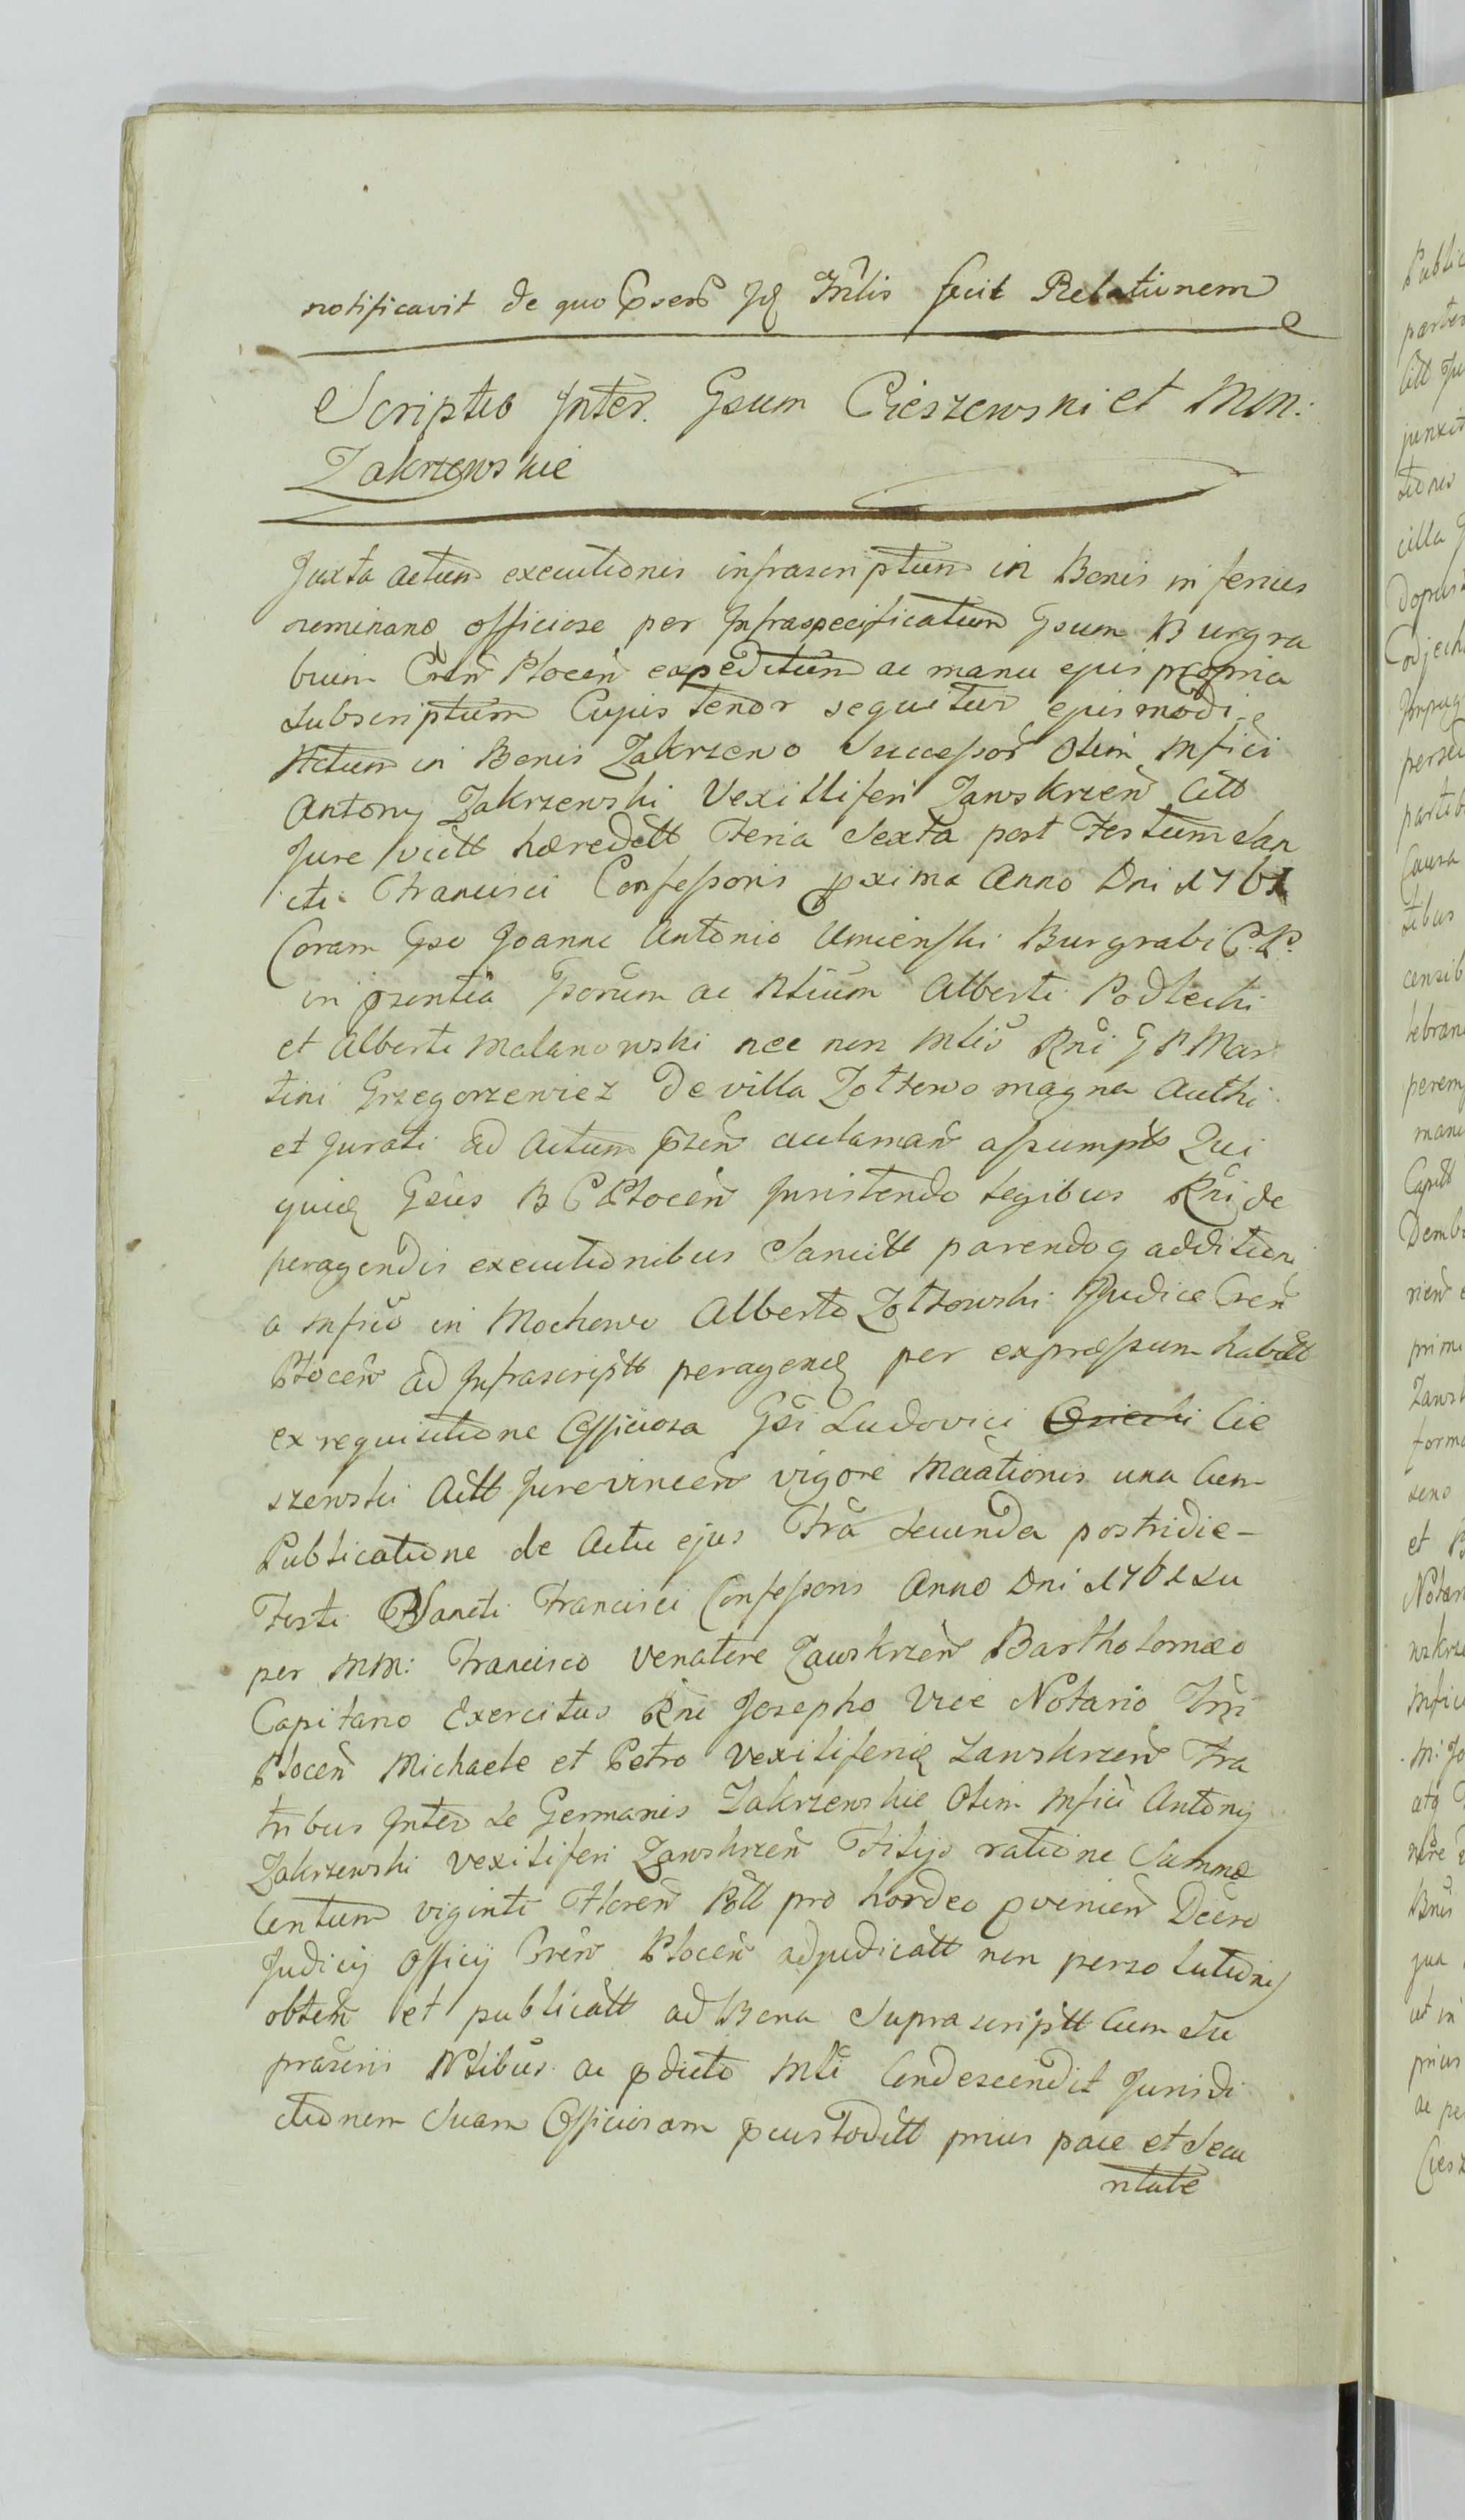 notificavit de quo Psens Jd Mrlis fecit Relationem
Scriptio Inter Gsum Cieszewski et MM:
Zakrzewskie
Juxta actum executionis infrascriptum in Bonis inferius
nominand officiose per Infraspecificatum Gsum Burgra
bium Cren Plocen expeditum ac manu ejus propria
Subscriptum Cujus tenor sequitur ejusmodi
Actum in Bonis Zakrzewo Successor Olim Mfici
Antony Zakrzewski Vexilliferi Zawskrzen Citt
Jure victt hæreditt Feria Sexta post Festum San
cti Francisci Confessoris pxima Anno Dni 1761
Coram Gso Joanne Antonio Umienski Burgrabi C. P.
in psentia Gsorum ac Nlium Alberti Podlecki
et Alberti Malanowski nec non Mlis Rni G P Mar
tini Grzegorzewicz de villa Zołtowo magna Authi
et Jurati ad Actum psen acclaman assumpt Qui
quid Gsus B C Plocen Insistendo legibus Rni de
peragendis executionibus Sancitt parendoq additioni
a Mfico in Mochowo Alberto Zołtowski Judice Cren
Plocen ad Infrascriptt peragend per expressum habitt
ex requisitione Officiosa Gsi Ludovici Osiecki Cie
szewski Actt Jurevincen vigore Maationis una Cum
Publicatione de Actu ejus Fra Secunda postridie-
Festi Sancti Francisci Confessoris Anno Dni 1761 Su
per MM: Francisco Venatore Zawskrzen Bartholomæo
Capitano Exercitus Rni Josepho Vice Notario Trri
Plocen Michaele et Petro Vexiliferid Zawskrzen Fra
tribus Inter Se Germanis Zakrzewskie Olim Mfici Antony
Zakrzewski vexiliferi Zawskrzen Filijs ratione Summæ
Centum viginti Floren Poll pro hordeo pvenien Decro
Judicij Officij Cren Plocen adjudicatt non persolutionis
obten et publicatt ad Bona Suprascriptt Cum Su
prascriis Nlibus ac pdicto Mli Condescendit Jurisdi
ctionem Suam Officiosam pcustoditt prius pace et Secu
ritate